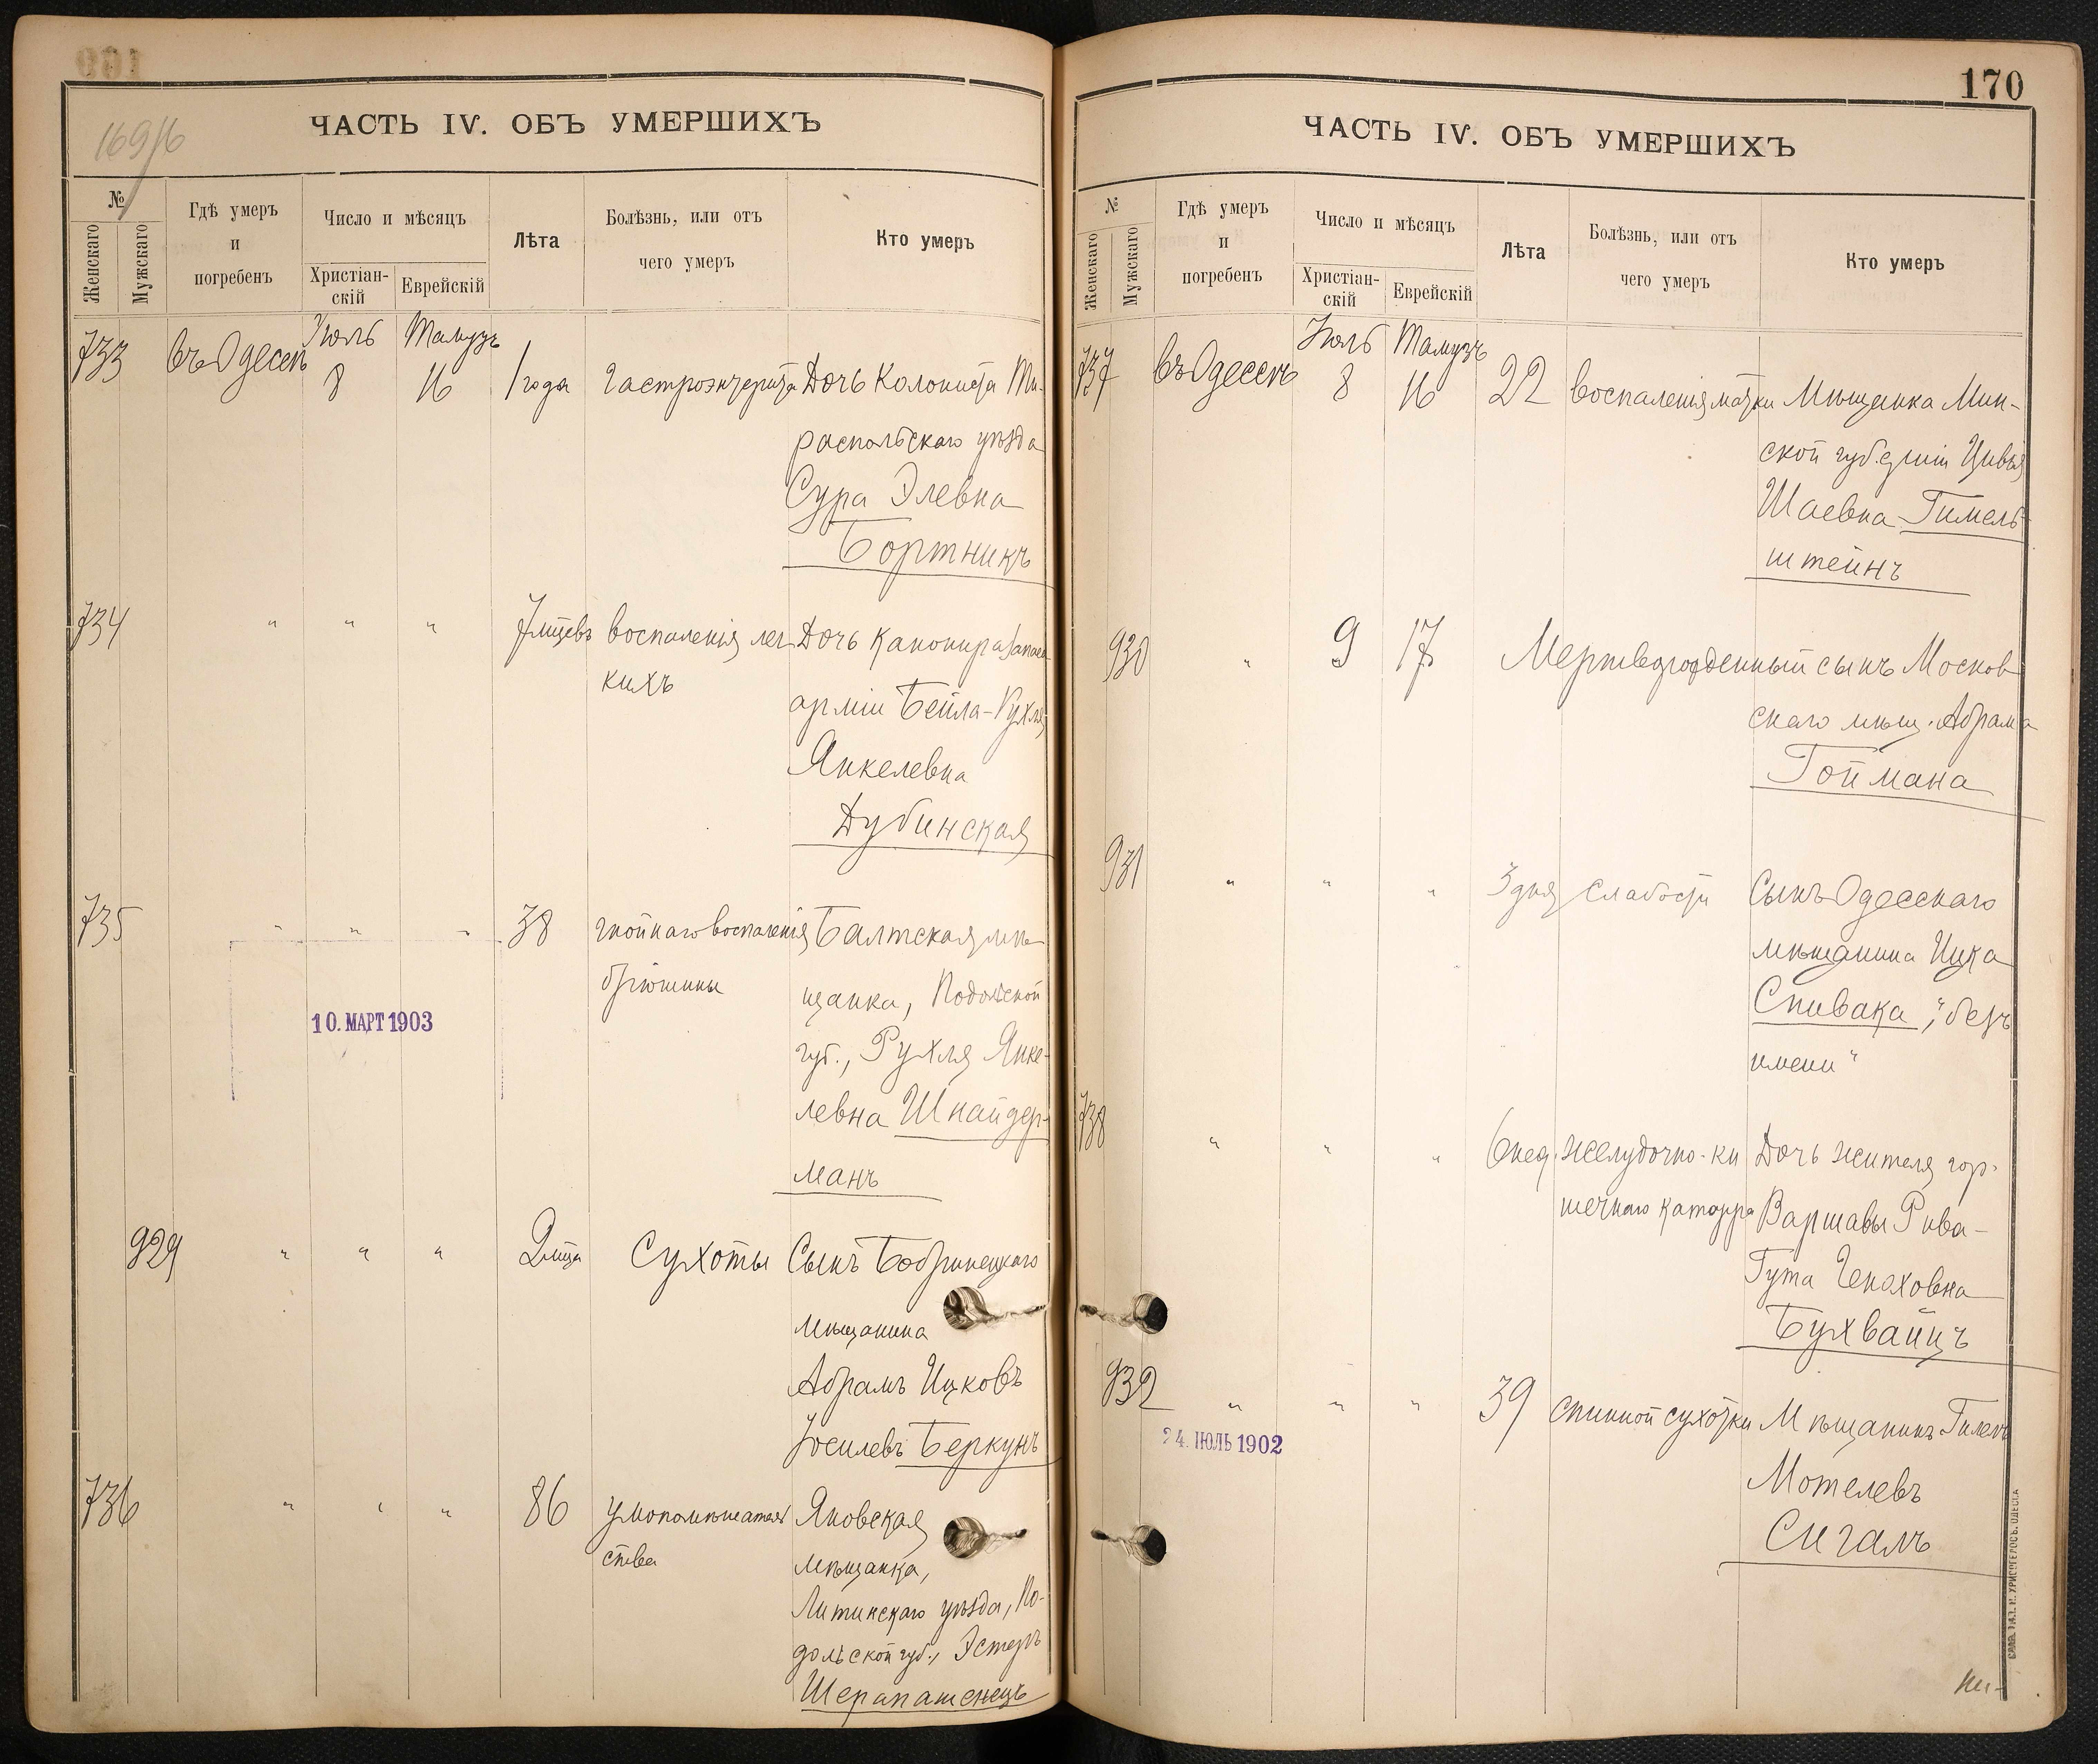 169/б
ЧАСТЬ IV. ОБЪ УМЕРШИХЪ
№
Женскаго
Мужскаго
Гдѣ умеръ и погребенъ
Число и мѣсяцъ
Христіанскій
Еврейскій
Лѣта
Болѣзнь, или отъ чего умеръ
Кто умеръ
Іюль Тамузъ
733 въ Одессѣ 8 16 1 года гастроэнтерита Дочь Колониста Ти-
распольскаго уѣзда
Сура Элевна
Бортникъ
734 " " " 7 мцевъ воспаленія лег Дочь Канонира запаса
кихъ
арміи Бейла-Рухля
Янкелевна
Дубинская
735 " " " 38 гнойнаго воспаленія Балтская мѣ-
брюшины
щанка, Подольской
10. МАРТ 1903
губ., Рухля Янке-
левна Шнайдер-
манъ
929 " " " 2 мца Сухоты Сынъ Бобринецкаго
мѣщанина
Абрамъ Ицковъ
Іосилевъ Беркунъ
736 " " " 86 умопомѣшатель Яновская
ства
мѣщанка,
Литинскаго уѣзда, По-
дольской губ., Эстеръ
Шерапашенецъ
170
ЧАСТЬ IV. ОБЪ УМЕРШИХЪ
№
Женскаго
Мужскаго
Гдѣ умеръ и погребенъ
Число и мѣсяцъ
Христіанскій
Еврейскій
Лѣта
Болѣзнь, или отъ чего умеръ
Кто умеръ
Іюль Тамузъ
737 въ Одессѣ 8 16 22 воспаленія матки Мѣщанка Мин-
ской губерніи Цивья
Шаевна Гимель-
штейнъ
930 " 9 17 Мертворожденный сынъ Москов
скаго мѣщ. Абрама
Гоймана
931 " " " 3 дня слабости Сынъ Одесскаго
мѣщанина Ицка
Спивака, "безъ
имени"
738 " " " 6 нед. желудочно-ки Дочь жителя гор.
шечнаго катарра Варшавы Рива-
Гута Ченаховна
Бухвайцъ
932 " " " 39 спинной сухотки Мѣщанинъ Гилель
24. ІЮЛЬ 1902
Мотелевъ
Сигалъ